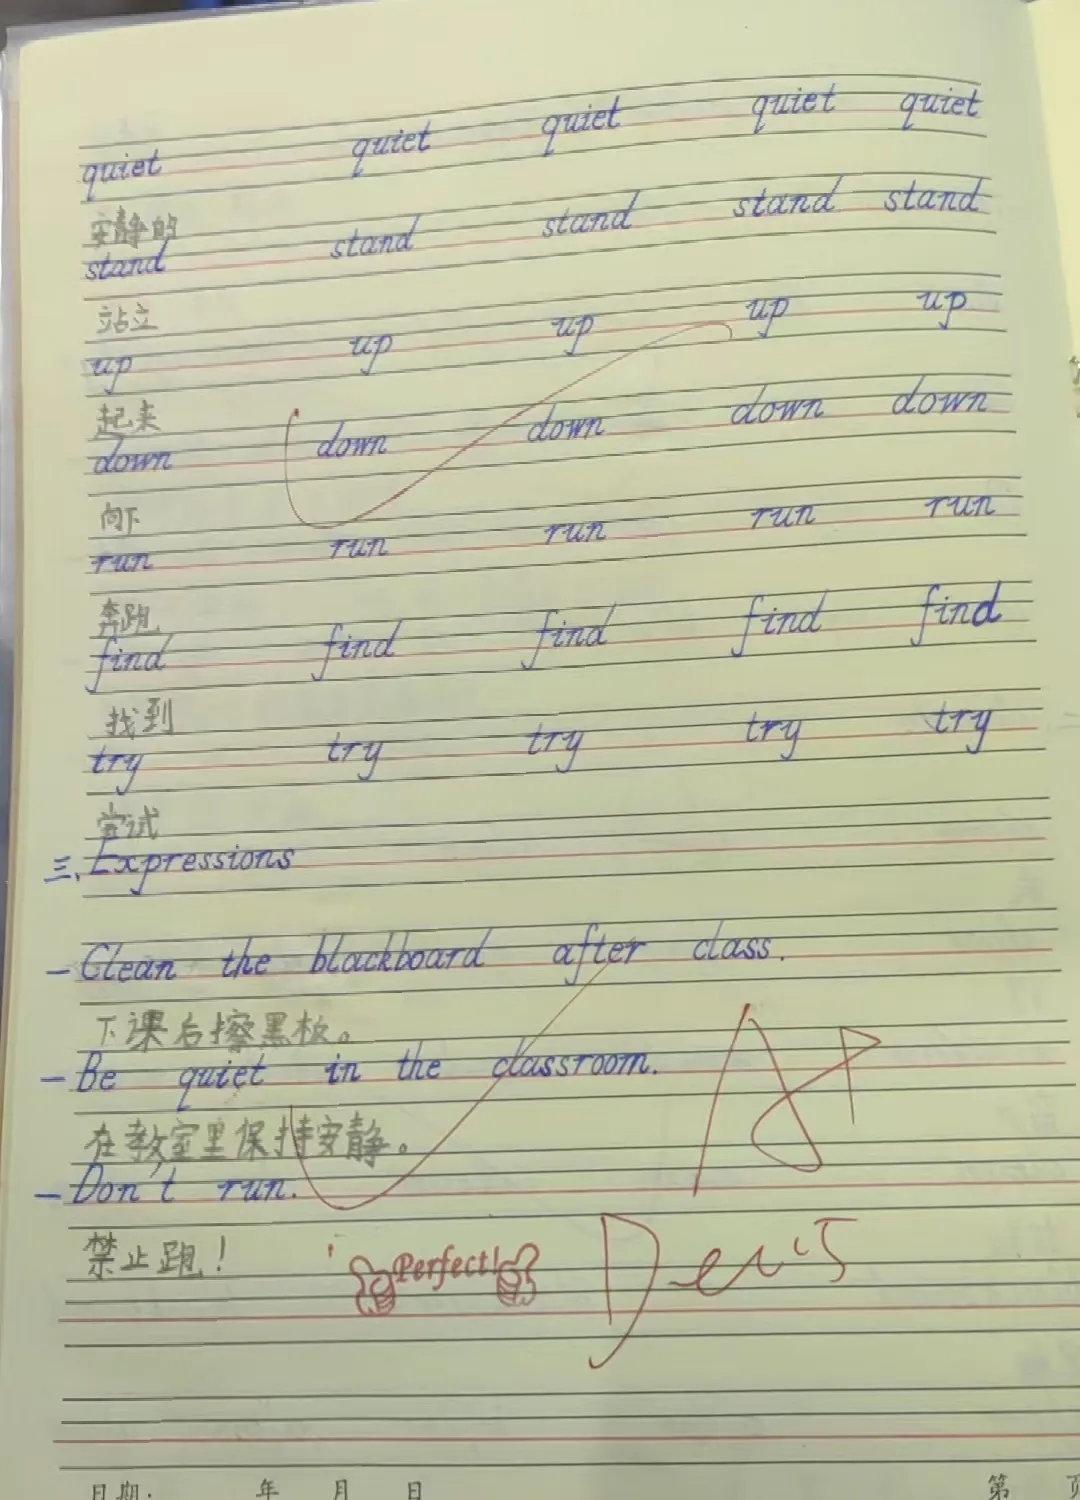 quiet quiet quiet quiet quiet
安静的
stand stand stand stand stand
站立
up up up up up
起来
down down down down down
向下
run run run run run
奔跑
find find find find find
找到
try try try try try
尝试
三、Expressions
- Clean the blackboard after class.
下课后擦黑板。
- Be quiet in the classroom.
在教室里保持安静。
- Don't run.
禁止跑！
Perfect!
日期: 年 月 日 第 页